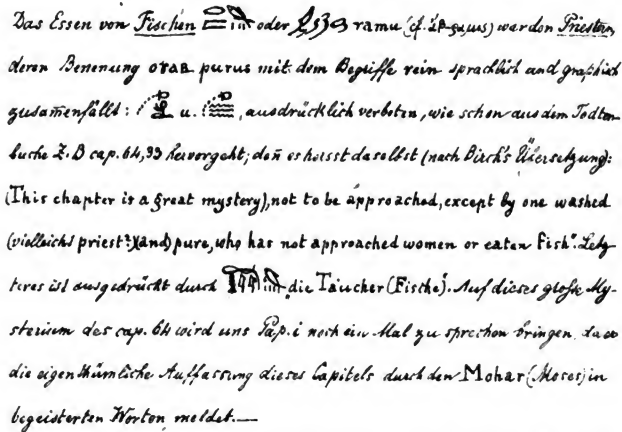 Das Essen von Fischen oder ramu (cf. piscus) war den Priestern,
deren Benenung ⲟⲩⲁⲃ purus mit dem Begriffe rein sprachlich und graphisch
zusam̄enfällt: u. , ausdrücklich verboten, wie schon aus dem Todten-
buche z. B cap. 64,33 hervorgeht; den̄ es heisst daselbst (nach Birch's Übersetzung):
(This chapter is a great mystery), not to be approached, except by one washed
(vielleicht priest?)(and) pure, who has not approached women or eaten fish". Letz-
teres ist ausgedrückt durch „die Taucher (Fische)". Auf dieses große My-
sterium des cap. 64 wird uns Pap. i noch ein Mal zu sprechen bringen, da er
die eigenthümliche Auffassung dieses Capitels durch den Mohar (Moses) in
begeisterten Worten meldet.—